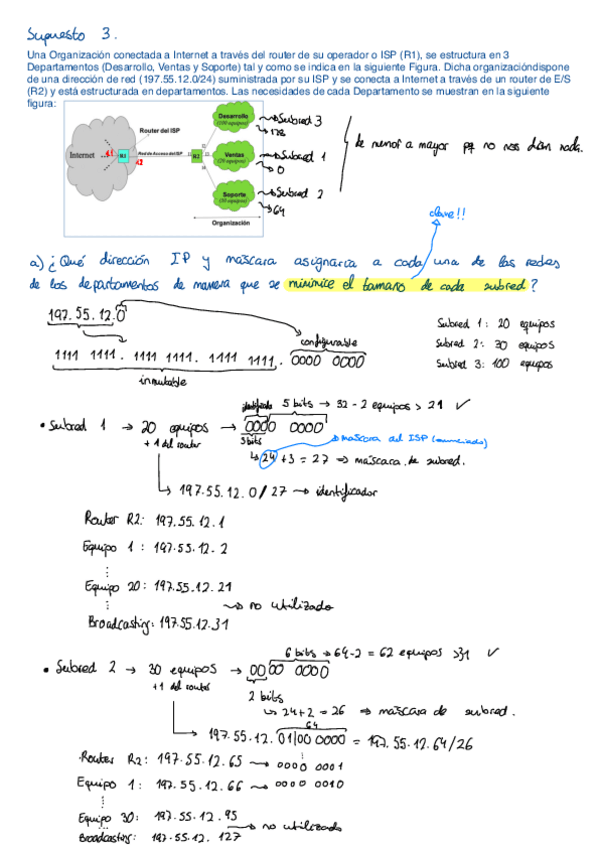 Supuesto 3.
Una Organización conectada a Internet a través del router de su operador o ISP (R1), se estructura en 3
Departamentos (Desarrollo, Ventas y Soporte) tal y como se indica en la siguiente Figura. Dicha organizacióndispone
de una dirección de red (197.55.12.0/24) suministrada por su ISP y se conecta a Internet a través de un router de E/S
(R2) y está estructurada en departamentos. Las necesidades de cada Departamento se muestran en la siguiente
figura:
Desarrollo
(100 equipos)
Subred 3
128
Router del ISP
Internet
R1
Red de Acceso del ISP
R2
Ventas
(20 equipos)
Subred 1
0
Soporte
(30 equipos)
Subred 2
64
Organización
de menor a mayor pq no nos dan nada.
clave!!
a) ¿Qué dirección IP y máscara asignaría a cada una de las redes
de los departamentos de manera que se minimice el tamaño de cada subred?
197.55.12.0
configurable
1111 1111. 1111 1111. 1111 1111. 0000 0000
inmutable
Subred 1: 20 equipos
Subred 2: 30 equipos
Subred 3: 100 equipos
5 bits → 32 - 2 equipos > 21 ✓
• Subred 1 → 20 equipos → 0000 0000
+ 1 del router
3 bits
máscara del ISP (enunciado)
↳ 24 + 3 = 27 ⇒ máscara de subred.
197.55.12.0/27 → identificador
Router R2: 197.55.12.1
Equipo 1: 197.55.12.2
⋮
Equipo 20: 197.55.12.21
⋮ → no utilizado
Broadcasting: 197.55.12.31
6 bits → 64-2 = 62 equipos >31 ✓
• Subred 2 → 30 equipos → 0000 0000
+1 del router
2 bits
↳ 24+2 = 26 ⇒ máscara de subred.
64
197.55.12.01|00 0000 = 197.55.12.64/26
Router R2: 197.55.12.65 → 0000 0001
Equipo 1: 197.55.12.66 → 0000 0010
⋮
Equipo 30: 197.55.12.95
→ no utilizado
Broadcasting: 197.55.12.127